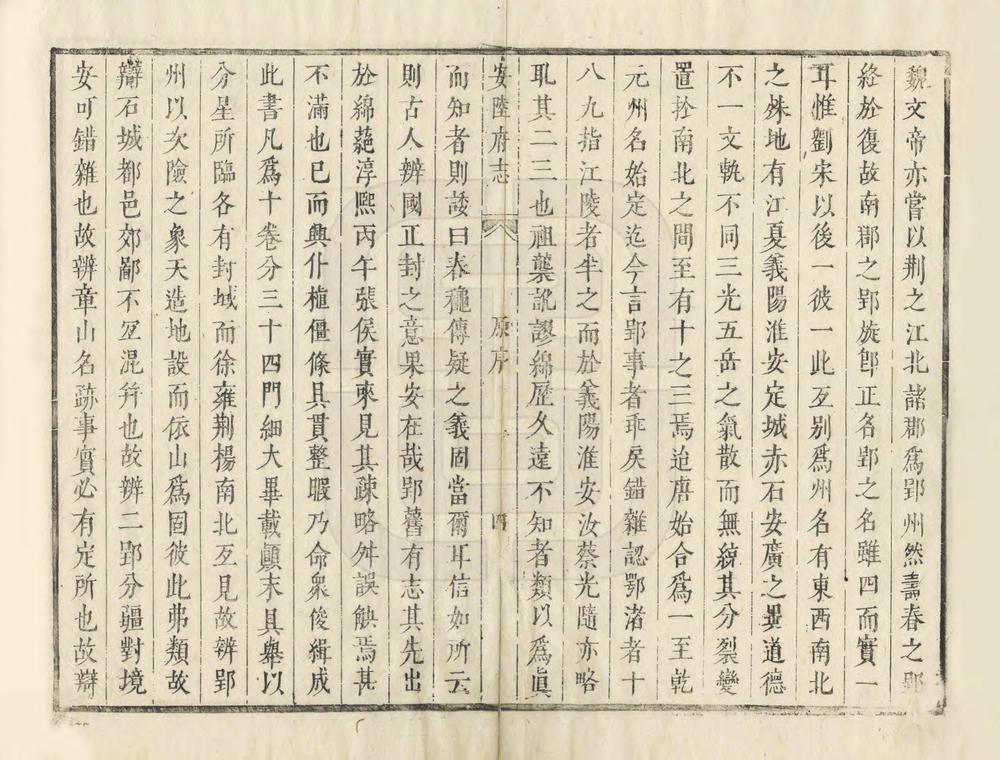 魏文帝亦嘗以荆之江北諸郡爲郢州然壽春之郢
終於復故南郡之郢旋即正名郢之名雖四而實一
耳惟劉宋以後一彼一此互别爲州名有東西南北
之殊地有江夏義陽淮安定城赤石安廣之異道德
不一文軌不同三光五岳之氣散而無統其分裂變
置於南北之間至有十之三焉迨唐始合爲一至乾
元州名始定迄今言郢事者乖戾錯雜認鄂渚者十
八九指江陵者半之而於義陽淮安汝蔡光隨亦略
耴其二三也祖襲訛謬綿歷久遠不知者類以爲眞
安陸府志 原序 四
而知者則諉曰春穐傳疑之義固當爾耳信如所云
則古人辨國正封之意果安在哉郢舊有志其先出
於綿蕝淳熙丙午張侯實來見其疎略舛誤缺焉甚
不滿也已而興仆植僵條具貫整暇乃命衆俊緝成
此書凡爲十卷分三十四門細大畢載顚末具舉以
分星所臨各有封域而徐雍荆楊南北互見故辨郢
州以次險之象天造地設而依山爲固彼此弗類故
辯石城都邑郊鄙不宐混并也故辨二郢分疆對境
安可錯雜也故辨章山名跡事實必有定所也故辯